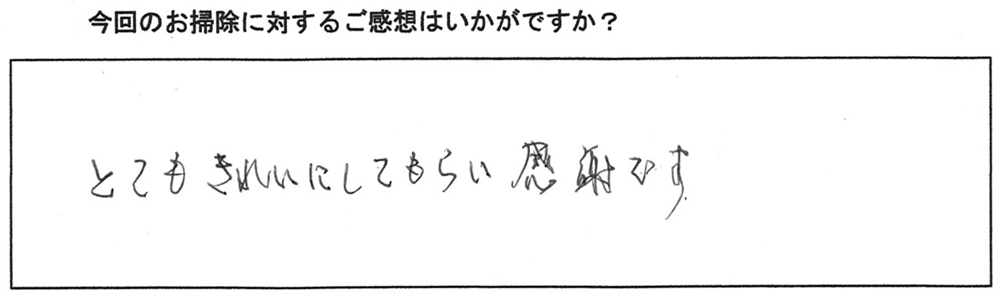 今回のお掃除に対するご感想はいかがですか？
とてもきれいにしてもらい感謝です